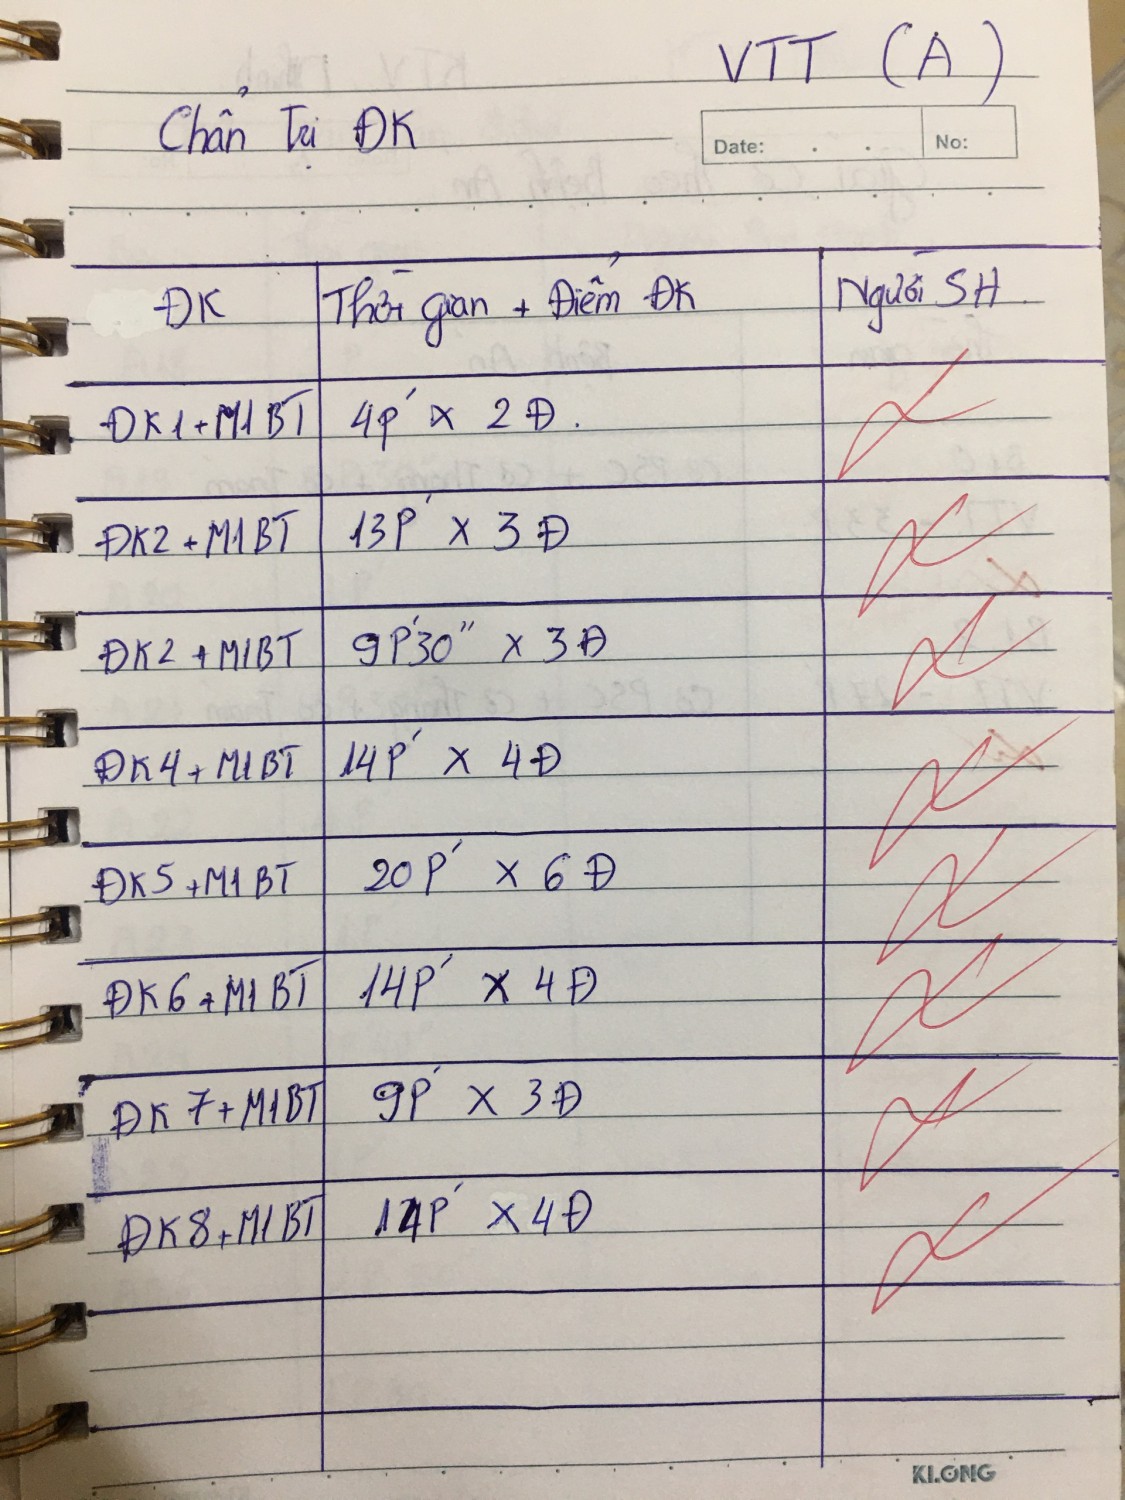 VTT (A)
Chẩn Trị ĐK
Date: . . No:
ĐK Thời gian + Điểm ĐK Người SH
ĐK1+M1BT 4P' x 2Đ.
ĐK2+M1BT 13P' x 3Đ
ĐK2+M1BT 9P'30" x 3Đ
ĐK4+M1BT 14P' x 4Đ
ĐK5+M1BT 20P' x 6Đ
ĐK6+M1BT 14P' x 4Đ
ĐK7+M1BT 9P' x 3Đ
ĐK8+M1BT 14P' x 4Đ
KLONG